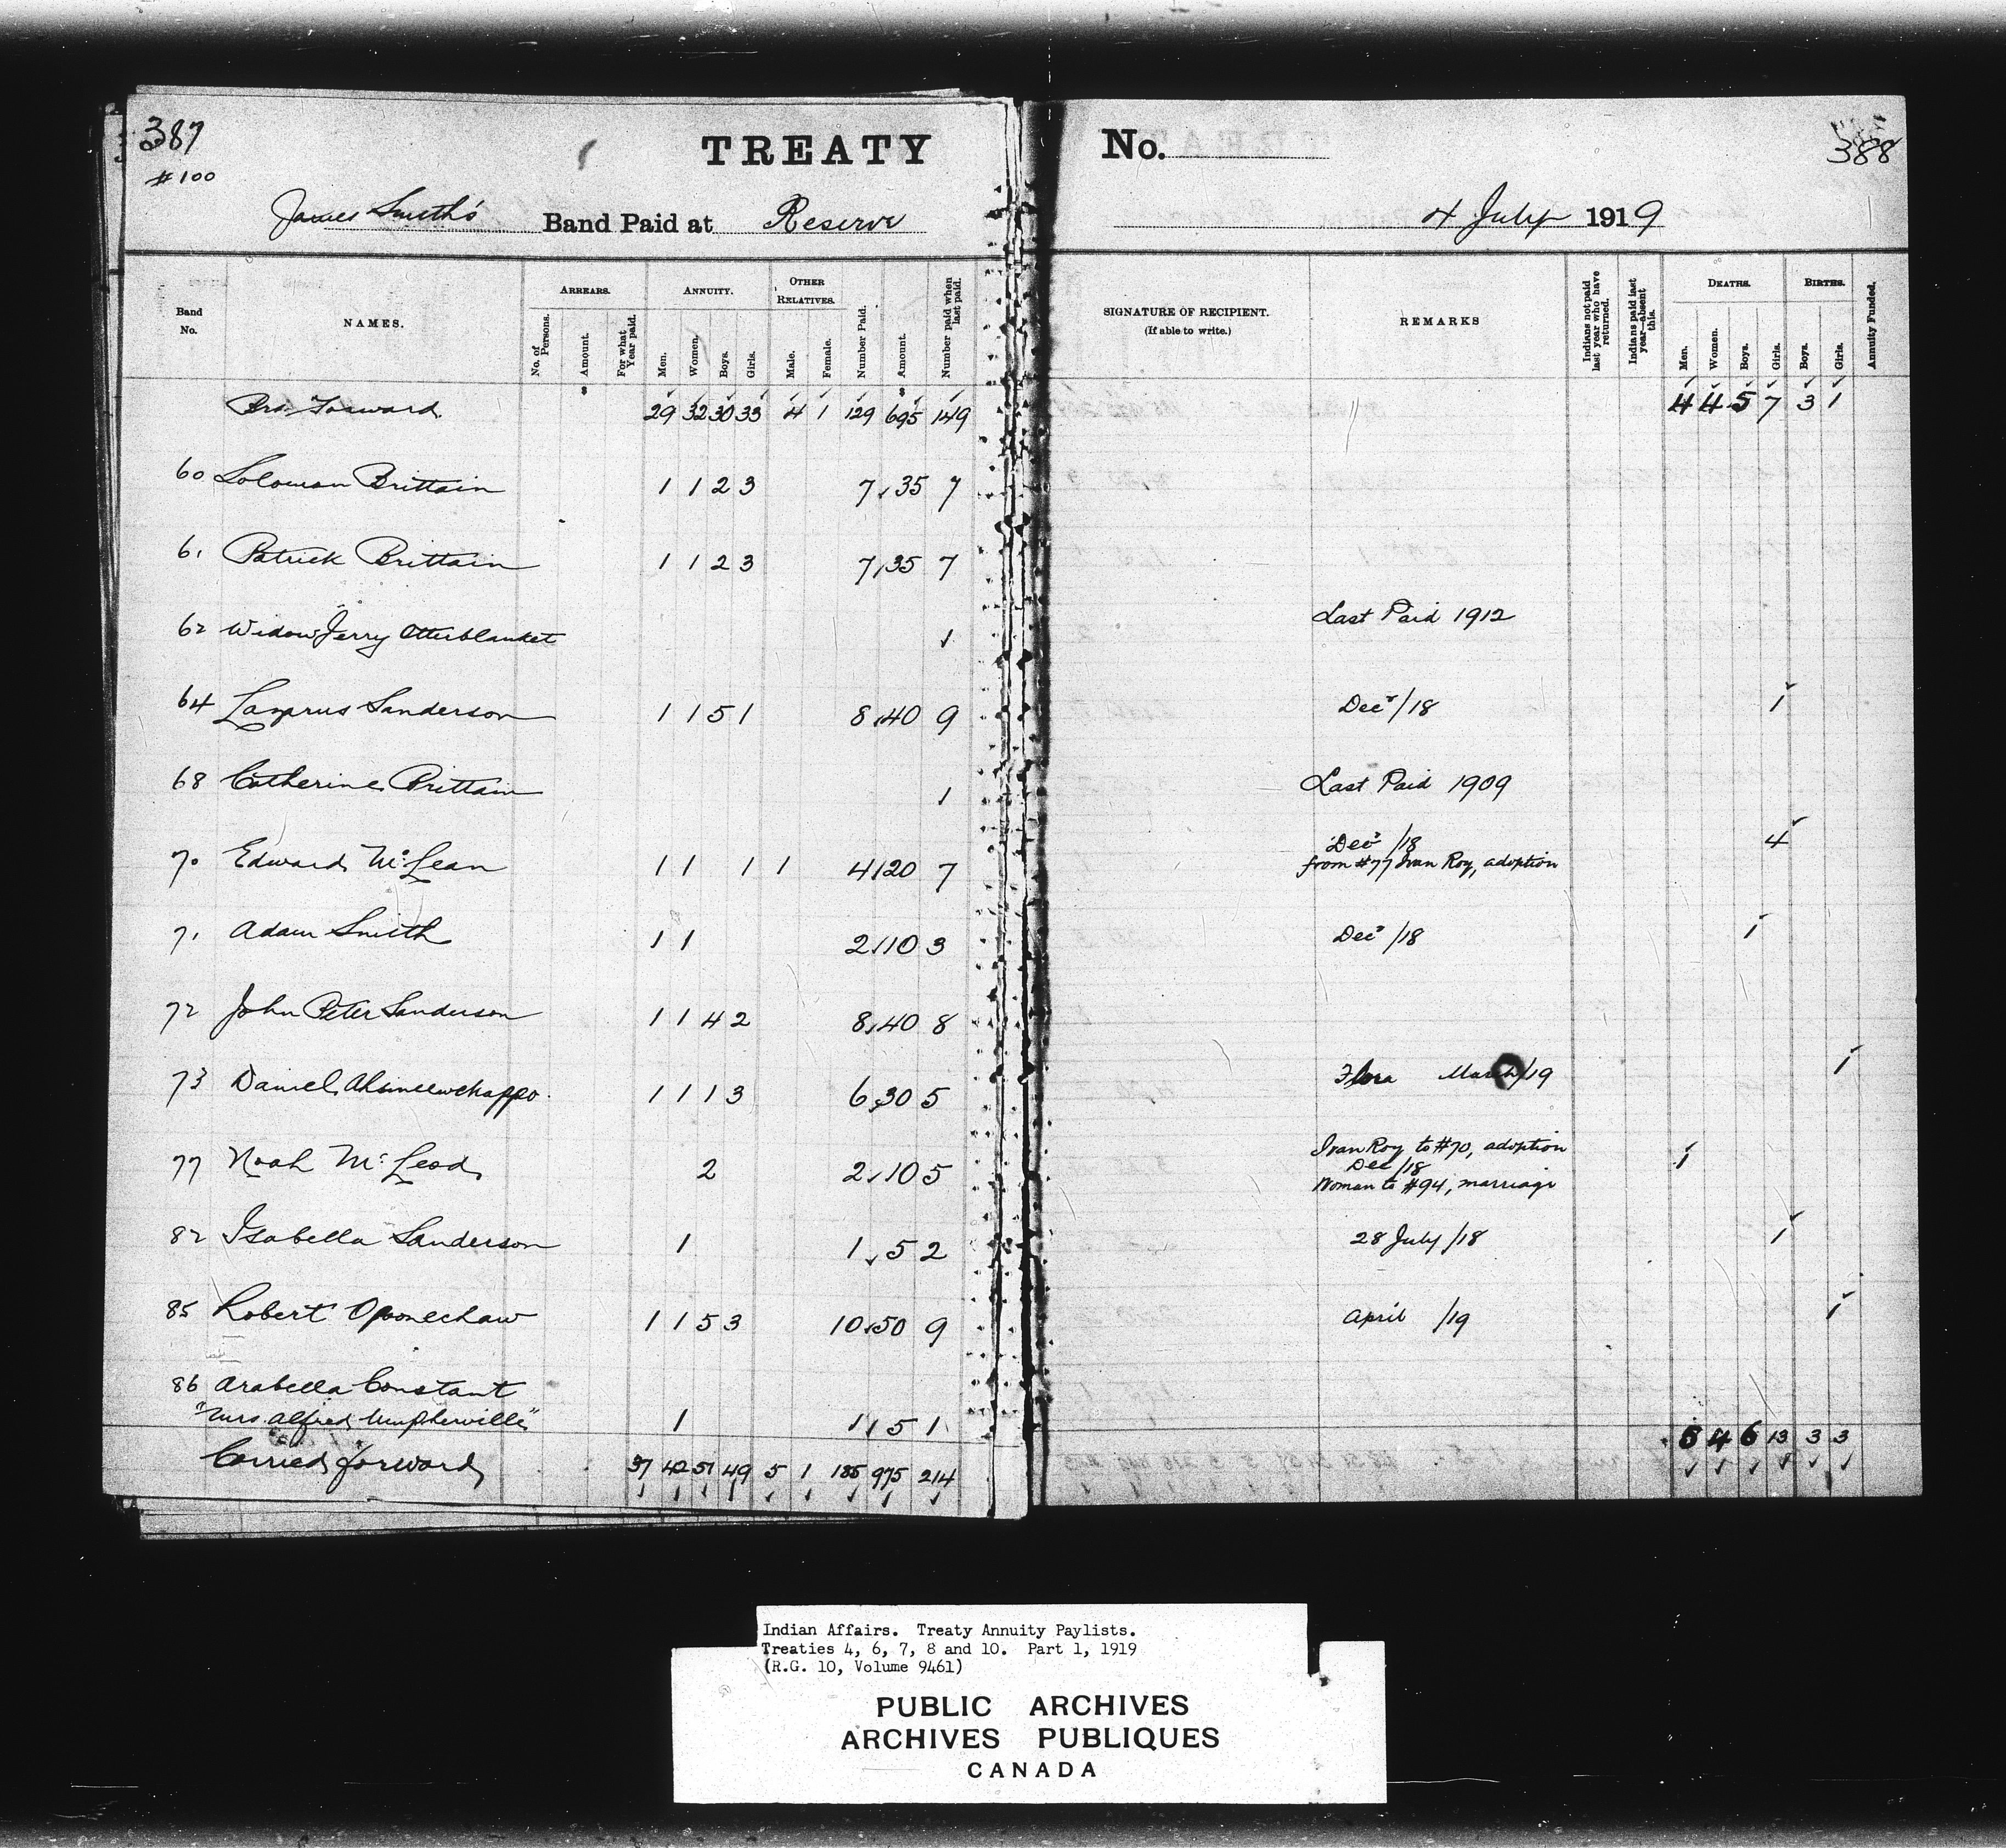 387
#100
TREATY
James Smith's Band Paid at Reserve
Band No.
NAMES.
ARREARS.
No. of Persons.
Amount.
For what Year paid.
ANNUITY.
Men.
Women.
Boys.
Girls.
OTHER RELATIVES.
Male.
Female.
Number Paid.
Amount.
Number paid when last paid.
Bro. Forward 29 32 30 33 4 1 129 695 149
60 Soloman Brittain 1 1 2 3 7 35 7
61 Patrick Brittain 1 1 2 3 7 35 7
62 Widow Jerry Otterblanket 1
64 Lazarus Sanderson 1 1 5 1 8 40 9
68 Catherine Brittain 1
70 Edward McLean 1 1 1 1 4 20 7
71 Adam Smith 1 1 2 10 3
72 John Peter Sanderson 1 1 4 2 8 40 8
73 Daniel Ahsineewchappo 1 1 1 3 6 30 5
77 Noah McLeod 2 2 10 5
82 Isabella Sanderson 1 1 5 2
85 Robert Opwonechaw 1 1 5 3 10 50 9
86 Arabella Constant
"Mrs Alfred Umpherville" 1 1 5 1
Carried forward 37 42 51 49 5 1 185 975 214
No.
388
4 July 1919
SIGNATURE OF RECIPIENT.
(If able to write.)
REMARKS
Indians not paid last year who have returned.
Indians paid last year—absent this.
DEATHS.
Men.
Women.
Boys.
Girls.
BIRTHS.
Boys.
Girls.
Annuity Funded.
4 4 5 7 3 1
Last Paid 1912
Decr /18 1
Last Paid 1909
Decr /18 4
from #77 Ivan Roy, adoption
Decr /18 1
Flora March/19 1
Ivan Roy to #70, adoption
Dec /18 1
Woman to #94, marriage
28 July /18 1
April /19 1
5 4 6 13 3 3
Indian Affairs. Treaty Annuity Paylists.
Treaties 4, 6, 7, 8 and 10. Part 1, 1919
(R.G. 10, Volume 9461)
PUBLIC ARCHIVES
ARCHIVES PUBLIQUES
CANADA